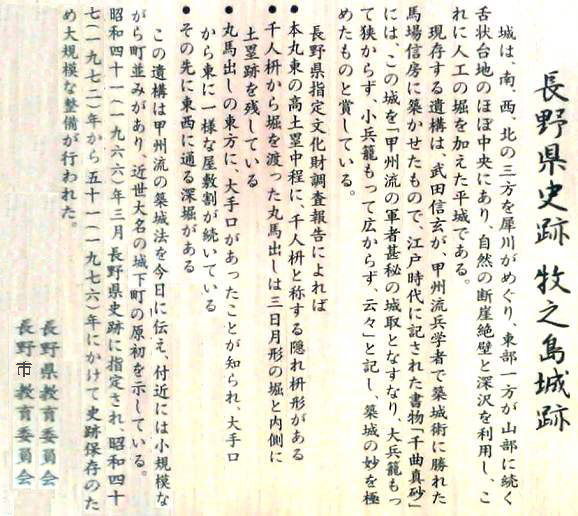 長野県史跡 牧之島城跡
城は、南、西、北の三方を犀川がめぐり、東部一方が山部に続く
舌状台地のほぼ中央にあり、自然の断崖絶壁と深沢を利用し、こ
れに人工の堀を加えた平城である。
現存する遺構は、武田信玄が、甲州流兵学者で築城術に勝れた
馬場信房に築かせたもので、江戸時代に記された書物「千曲真砂」
には、この城を「甲州流の軍者甚秘の城取となすなり、大兵籠もっ
て狭からず、小兵籠もって広からず、云々」と記し、築城の妙を極
めたものと賞している。
長野県指定文化財調査報告によれば
●本丸東の高土塁中程に、千人枡と称する隠れ枡形がある
●千人枡から堀を渡った丸馬出しは三日月形の堀と内側に
土塁跡を残している
●丸馬出しの東方に、大手口があったことが知られ、大手口
から東に一様な屋敷割が続いている
●その先に東西に通る深堀がある
この遺構は甲州流の築城法を今日に伝え、付近には小規模な
がら町並みがあり、近世大名の城下町の原初を示している。
昭和四十一(一九六六)年三月長野県史跡に指定され、昭和四十
七(一九七二)年から五十一(一九七六)年にかけて史跡保存のた
め大規模な整備が行われた。
長野県教育委員会
長野市教育委員会